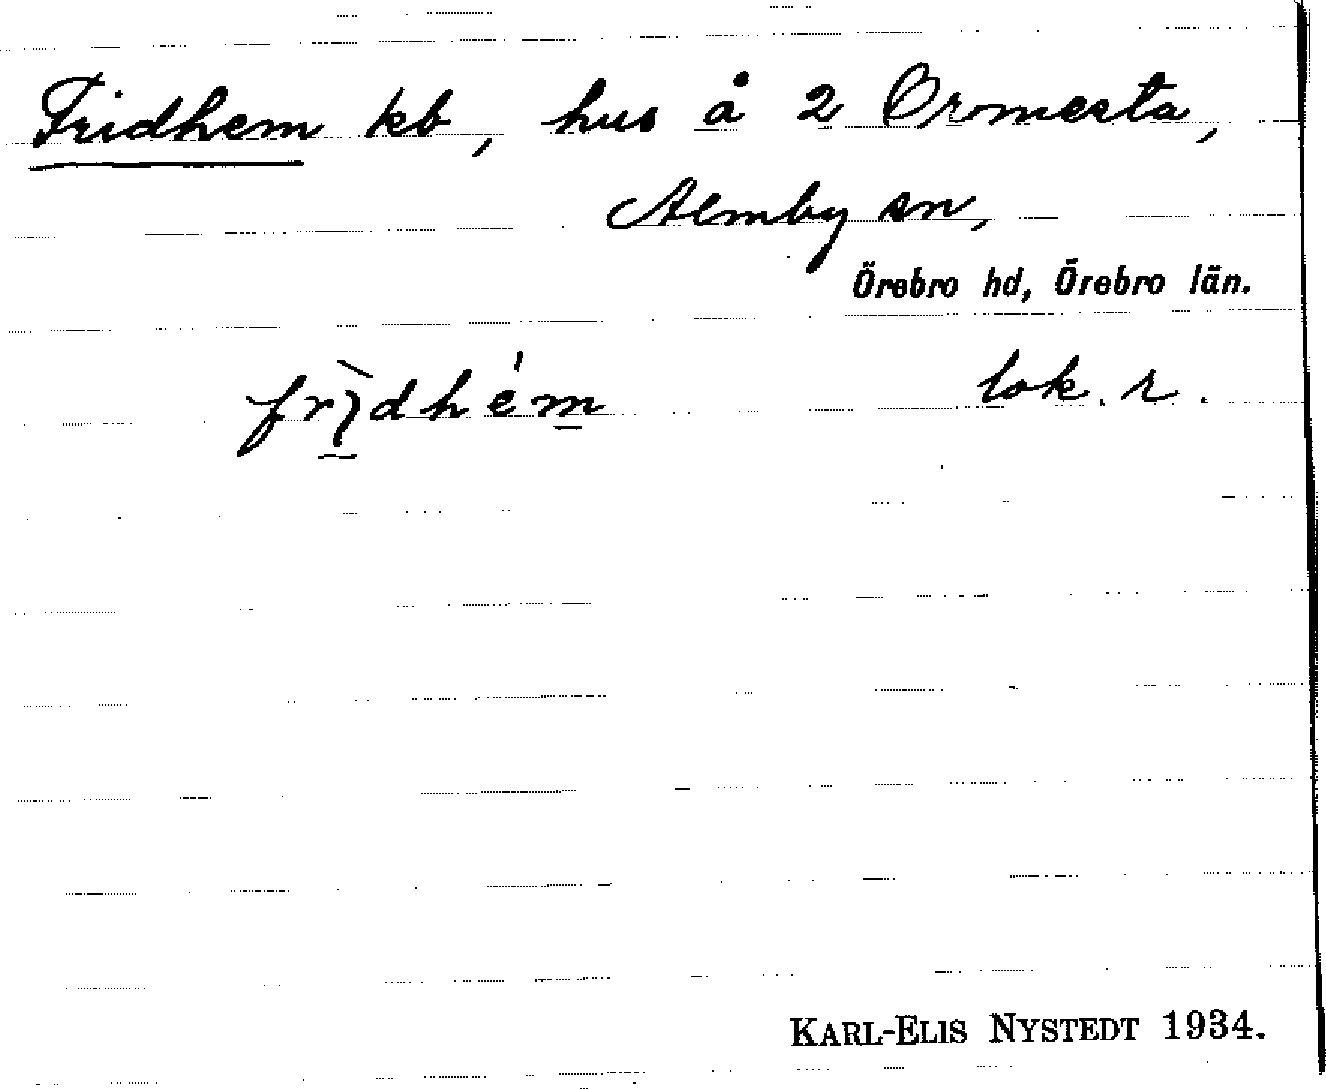 Fridhem kb, hus å 2 Ormesta,
Almby sn,
Örebro hd, Örebro län.
frı̀dhém lok. r.
KARL-ELIS NYSTEDT 1934.